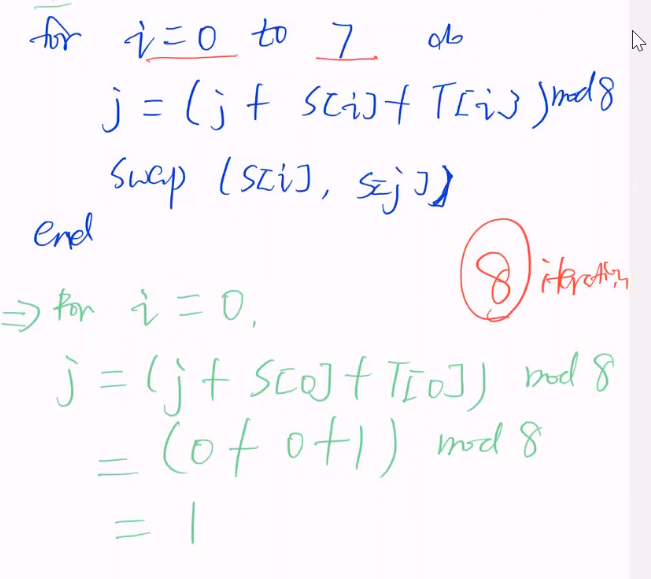 for i=0 to 7 do
j = (j + S[i] + T[i]) mod 8
Swap (S[i], S[j])
end
8 iteration
⇒ For i = 0,
j = (j + S[0] + T[0]) mod 8
= (0 + 0 + 1) mod 8
= 1